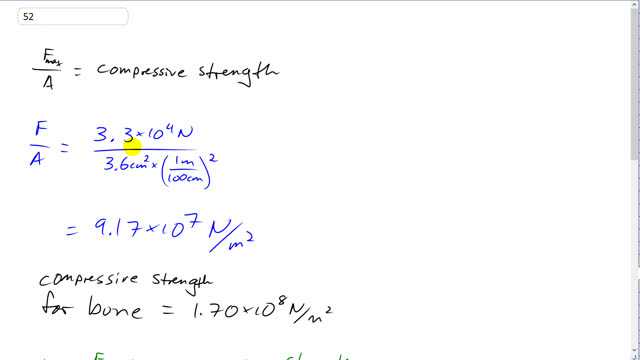 52
Fmax/A = compressive strength
F/A = 3.3×10⁴N / 3.6cm² × (1m/100cm)²
= 9.17×10⁷ N/m²
compressive strength
for bone = 1.70×10⁸ N/m²